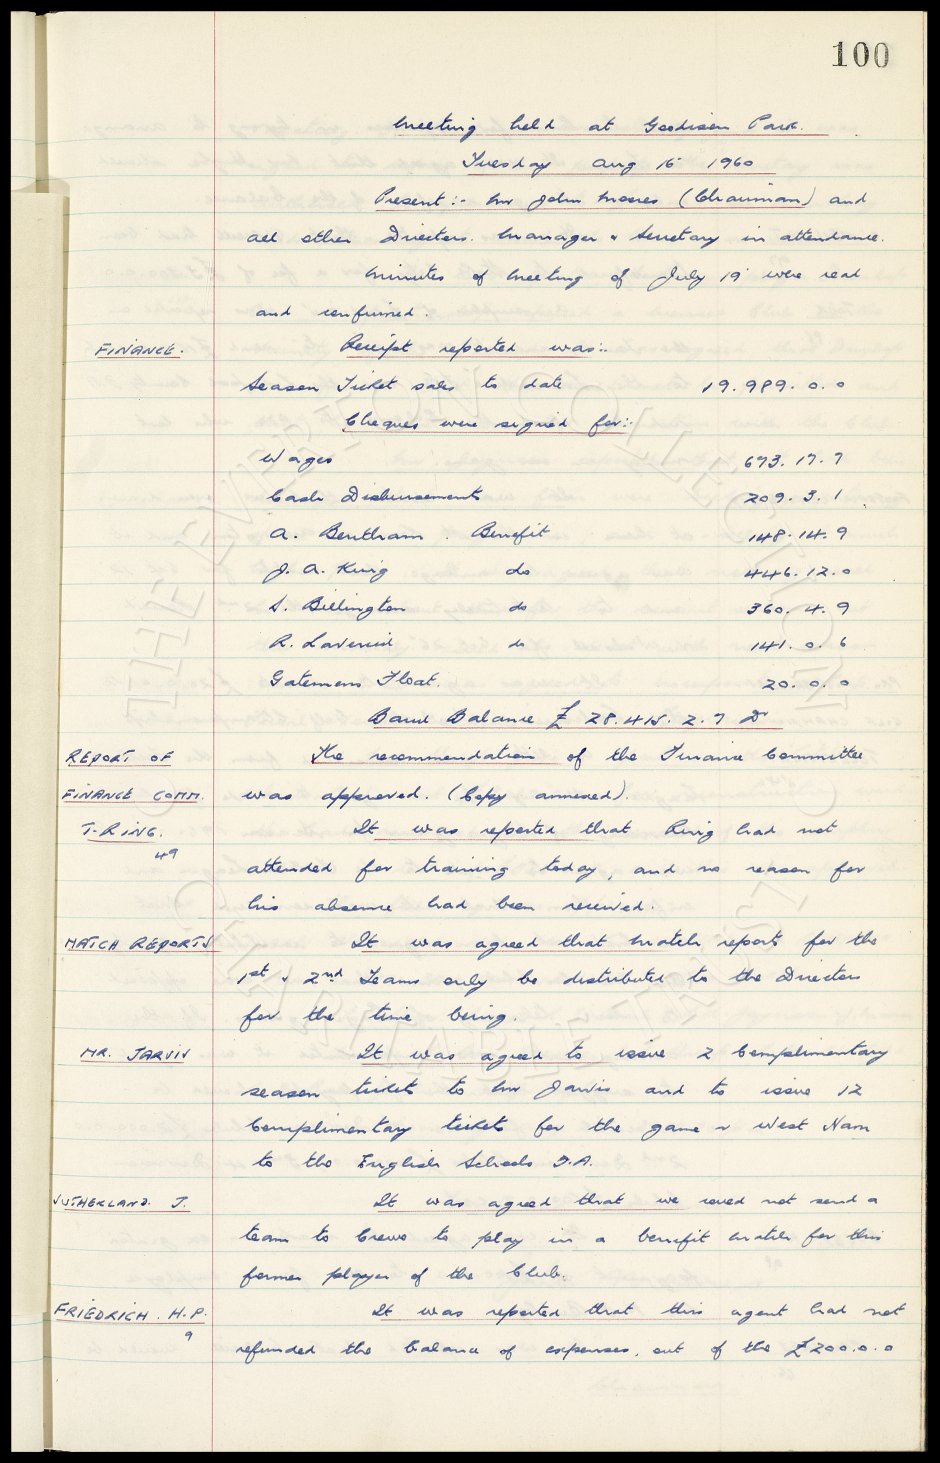 100
Meeting held at Goodison Park.
Tuesday Aug 16 1960
Present:- Mr John Moores (Chairman) and
all other Directors. Manager & Secretary in attendance.
Minutes of Meeting of July 19 were read
and confirmed.
FINANCE. Receipt reported was:-
Season Ticket sales to date 19.989.0.0
Cheques were signed for:-
Wages 673.17.7
Cash Disbursements 209.3.1
A. Bentham. Benefit 148.14.9
J. A. King do 446.12.0
S. Billington do 360.4.9
R. Laverick do 141.0.6
Gatemens Float. 20.0.0
Bank Balance £28.415.2.7 Dr
REPORT OF The recommendation of the Finance Committee
FINANCE COMM. was approved. (Copy annexed).
T. RING. It was reported that Ring had not
49
attended for training today, and no reason for
his absence had been received.
MATCH REPORTS It was agreed that match reports for the
1st & 2nd Teams only be distributed to the Directors
for the time being.
MR. JARVIS It was agreed to issue 2 Complimentary
season tickets to Mr Jarvis and to issue 12
Complimentary tickets for the game v West Ham
to the English Schools F.A.
SUTHERLAND. J. It was agreed that we could not send a
team to Crewe to play in a benefit match for this
former player of the Club.
FRIEDRICH. H.P. It was reported that this agent had not
9
refunded the balance of expenses, out of the £200.0.0